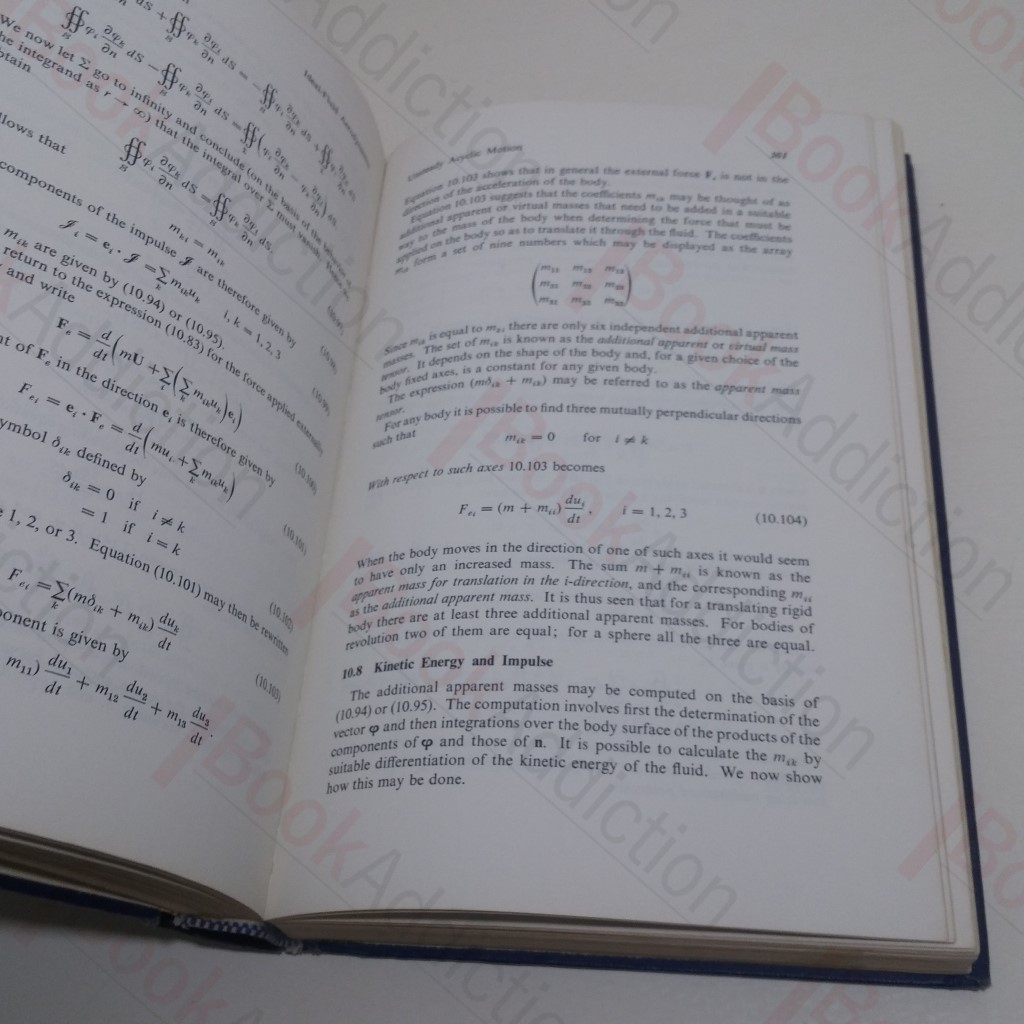 Ideal-Fluid Aerodynamics
We now let Σ go to infinity and conclude (on the basis of the behavior of
the integrand as r → ∞) that the integral over Σ must vanish.
obtain
∯ φᵢ ∂φₖ/∂n dS = ∯ φₖ ∂φᵢ/∂n dS.
follows that
mₖᵢ = mᵢₖ
components of the impulse 𝓙 are therefore given by
𝓙ᵢ = eᵢ · 𝓙 = Σₖ mᵢₖuₖ i, k = 1, 2, 3
mᵢₖ are given by (10.94) or (10.95).
return to the expression (10.83) for the force applied externally
and write
Fₑ = d/dt (mU + Σᵢ(Σₖ mᵢₖuₖ)eᵢ) (10.100)
of Fₑ in the direction eᵢ is therefore given by
Fₑᵢ = eᵢ · Fₑ = d/dt (muᵢ + Σₖ mᵢₖuₖ) (10.101)
symbol δᵢₖ defined by
δᵢₖ = 0 if i ≠ k
= 1 if i = k
1, 2, or 3. Equation (10.101) may then be rewritten
Fₑᵢ = Σₖ(mδᵢₖ + mᵢₖ) duₖ/dt (10.103)
component is given by
m₁₁) du₁/dt + m₁₂ du₂/dt + m₁₃ du₃/dt.
Unsteady Acyclic Motion 301
Equation 10.103 shows that in general the external force Fₑ is not in the
direction of the acceleration of the body.
Equation 10.103 suggests that the coefficients mᵢₖ may be thought of as
additional apparent or virtual masses that need to be added in a suitable
way to the mass of the body when determining the force that must be
applied on the body so as to translate it through the fluid. The coefficients
mᵢₖ form a set of nine numbers which may be displayed as the array
(m₁₁ m₁₂ m₁₃
m₂₁ m₂₂ m₂₃
m₃₁ m₃₂ m₃₃)
Since mᵢₖ is equal to mₖᵢ, there are only six independent additional apparent
masses. The set of mᵢₖ is known as the additional apparent or virtual mass
tensor. It depends on the shape of the body and, for a given choice of the
body fixed axes, is a constant for any given body.
The expression (mδᵢₖ + mᵢₖ) may be referred to as the apparent mass
tensor.
For any body it is possible to find three mutually perpendicular directions
such that
mᵢₖ = 0 for i ≠ k
With respect to such axes 10.103 becomes
Fₑᵢ = (m + mᵢᵢ) duᵢ/dt, i = 1, 2, 3 (10.104)
When the body moves in the direction of one of such axes it would seem
to have only an increased mass. The sum m + mᵢᵢ is known as the
apparent mass for translation in the i-direction, and the corresponding mᵢᵢ
as the additional apparent mass. It is thus seen that for a translating rigid
body there are at least three additional apparent masses. For bodies of
revolution two of them are equal; for a sphere all the three are equal.
10.8 Kinetic Energy and Impulse
The additional apparent masses may be computed on the basis of
(10.94) or (10.95). The computation involves first the determination of the
vector φ and then integrations over the body surface of the products of the
components of φ and those of n. It is possible to calculate the mᵢₖ by
suitable differentiation of the kinetic energy of the fluid. We now show
how this may be done.
BookAddiction